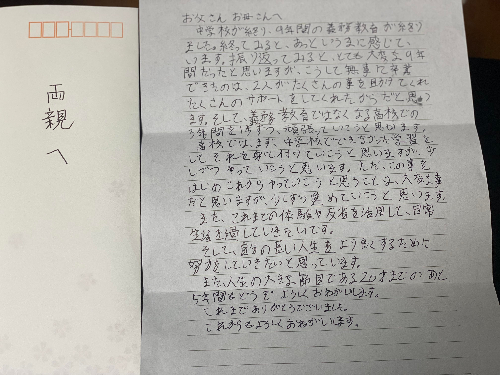 両親へ
お父さんお母さんへ
中学校が終り、9年間の義務教育が終り
ました。終ってみると、あっというまに感じて
います。振り返ってみると、とても大変な9年
間だったと思いますが、こうして無事に卒業
できたのは、2人がたくさんの事を助けてくれ
たくさんのサポートをしてくれたからだと思い
ます。そして、義務教育ではなくなる高校での
3年間を少しずつ、頑張っていこうと思います。
高校では、まず、中学校でできなかった学習と
して、それを身に付けていこうと思いますが、少
しずつやっていこうと思います。ただ、この事を
はじめ これからやっていこうと思うことは、大変な事
だと思いますが、少しずつ進めていこうと思います。
また、これまでの体験や反省を活用して、日常
生活を過していきたいです。
そして、直きの長い人生をより良くするために
していきたいと思っています。
また、人生の大きな節目である20才までのあと
5年間をどうぞよろしくおねがいします。
これまでありがとうございました。
これからもよろしくおねがいします。